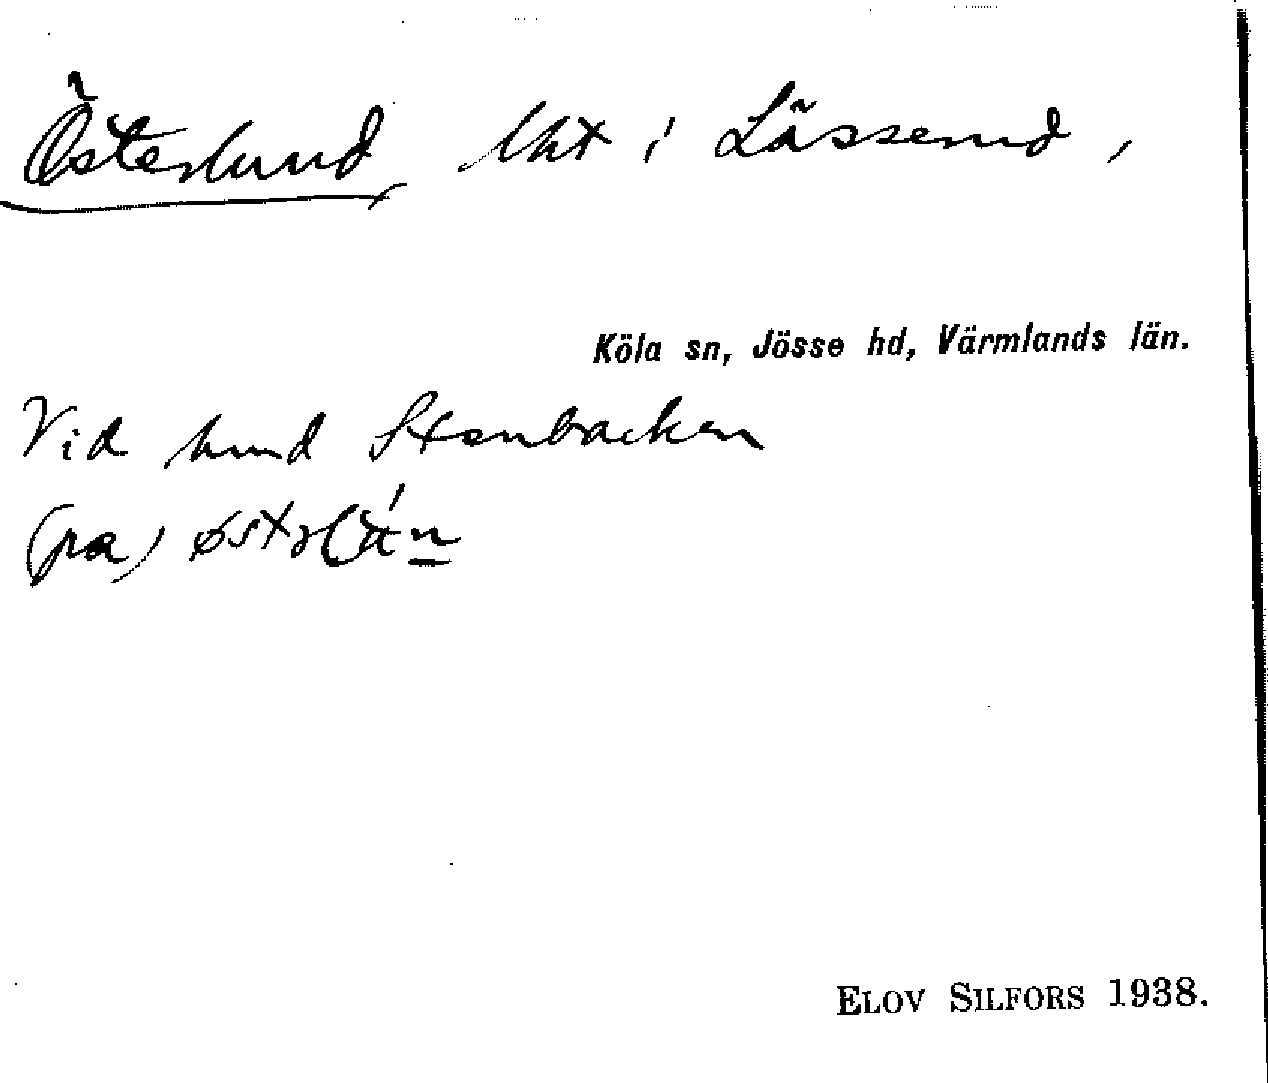 Österlund, lht i Lässerud,
Köla sn, Jösse hd, Värmlands län.
Vid lund Stenbacken
(pa)
ELOV SILFORS 1938.